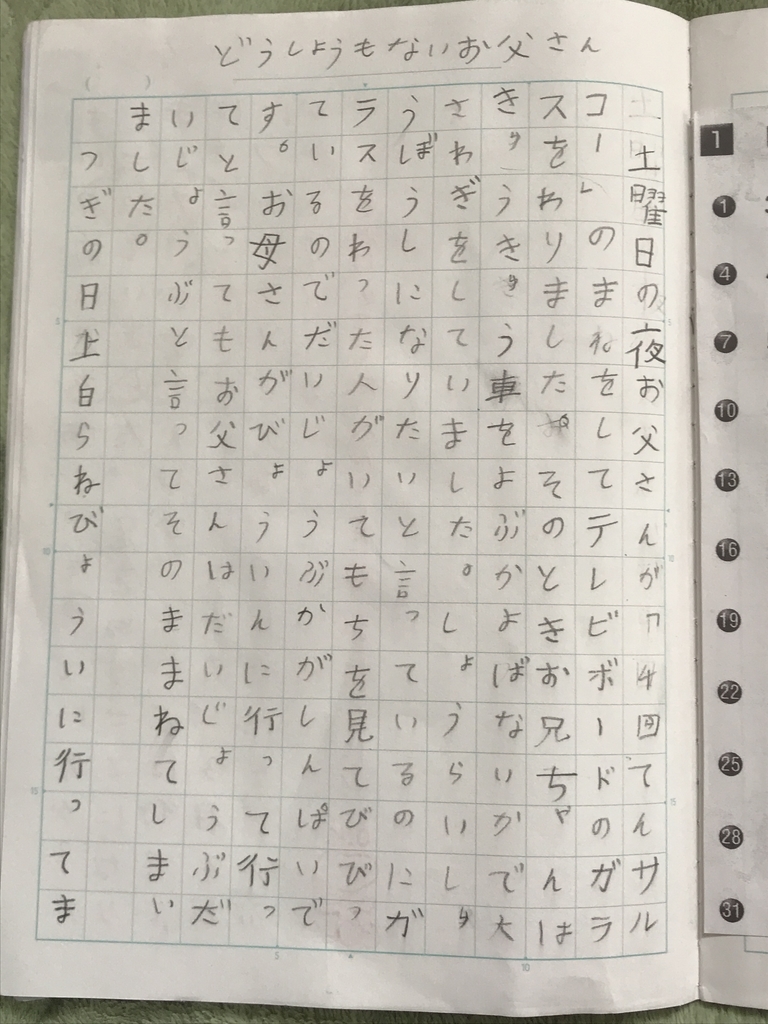 どうしようもないお父さん
土曜日の夜お父さんが「4回てんサル
コー」のまねをしてテレビボードのガラ
スをわりました。そのときお兄ちゃんは
きゅうきゅう車をよぶかよばないかで大
さわぎをしていました。しょうらいしゅ
うぼうしになりたいと言っているのにガ
ラスをわった人がいてもちを見てびびっ
ているのでだいじょうぶかがしんぱいで
す。お母さんがびょういんに行って行っ
てと言ってもお父さんはだいじょうぶだ
いじょうぶと言ってそのままねてしまい
ました。
つぎの日上白らねびょういに行ってま
5
10
15
5
10
15
5
10
1
1
4
7
10
13
16
19
22
25
28
31